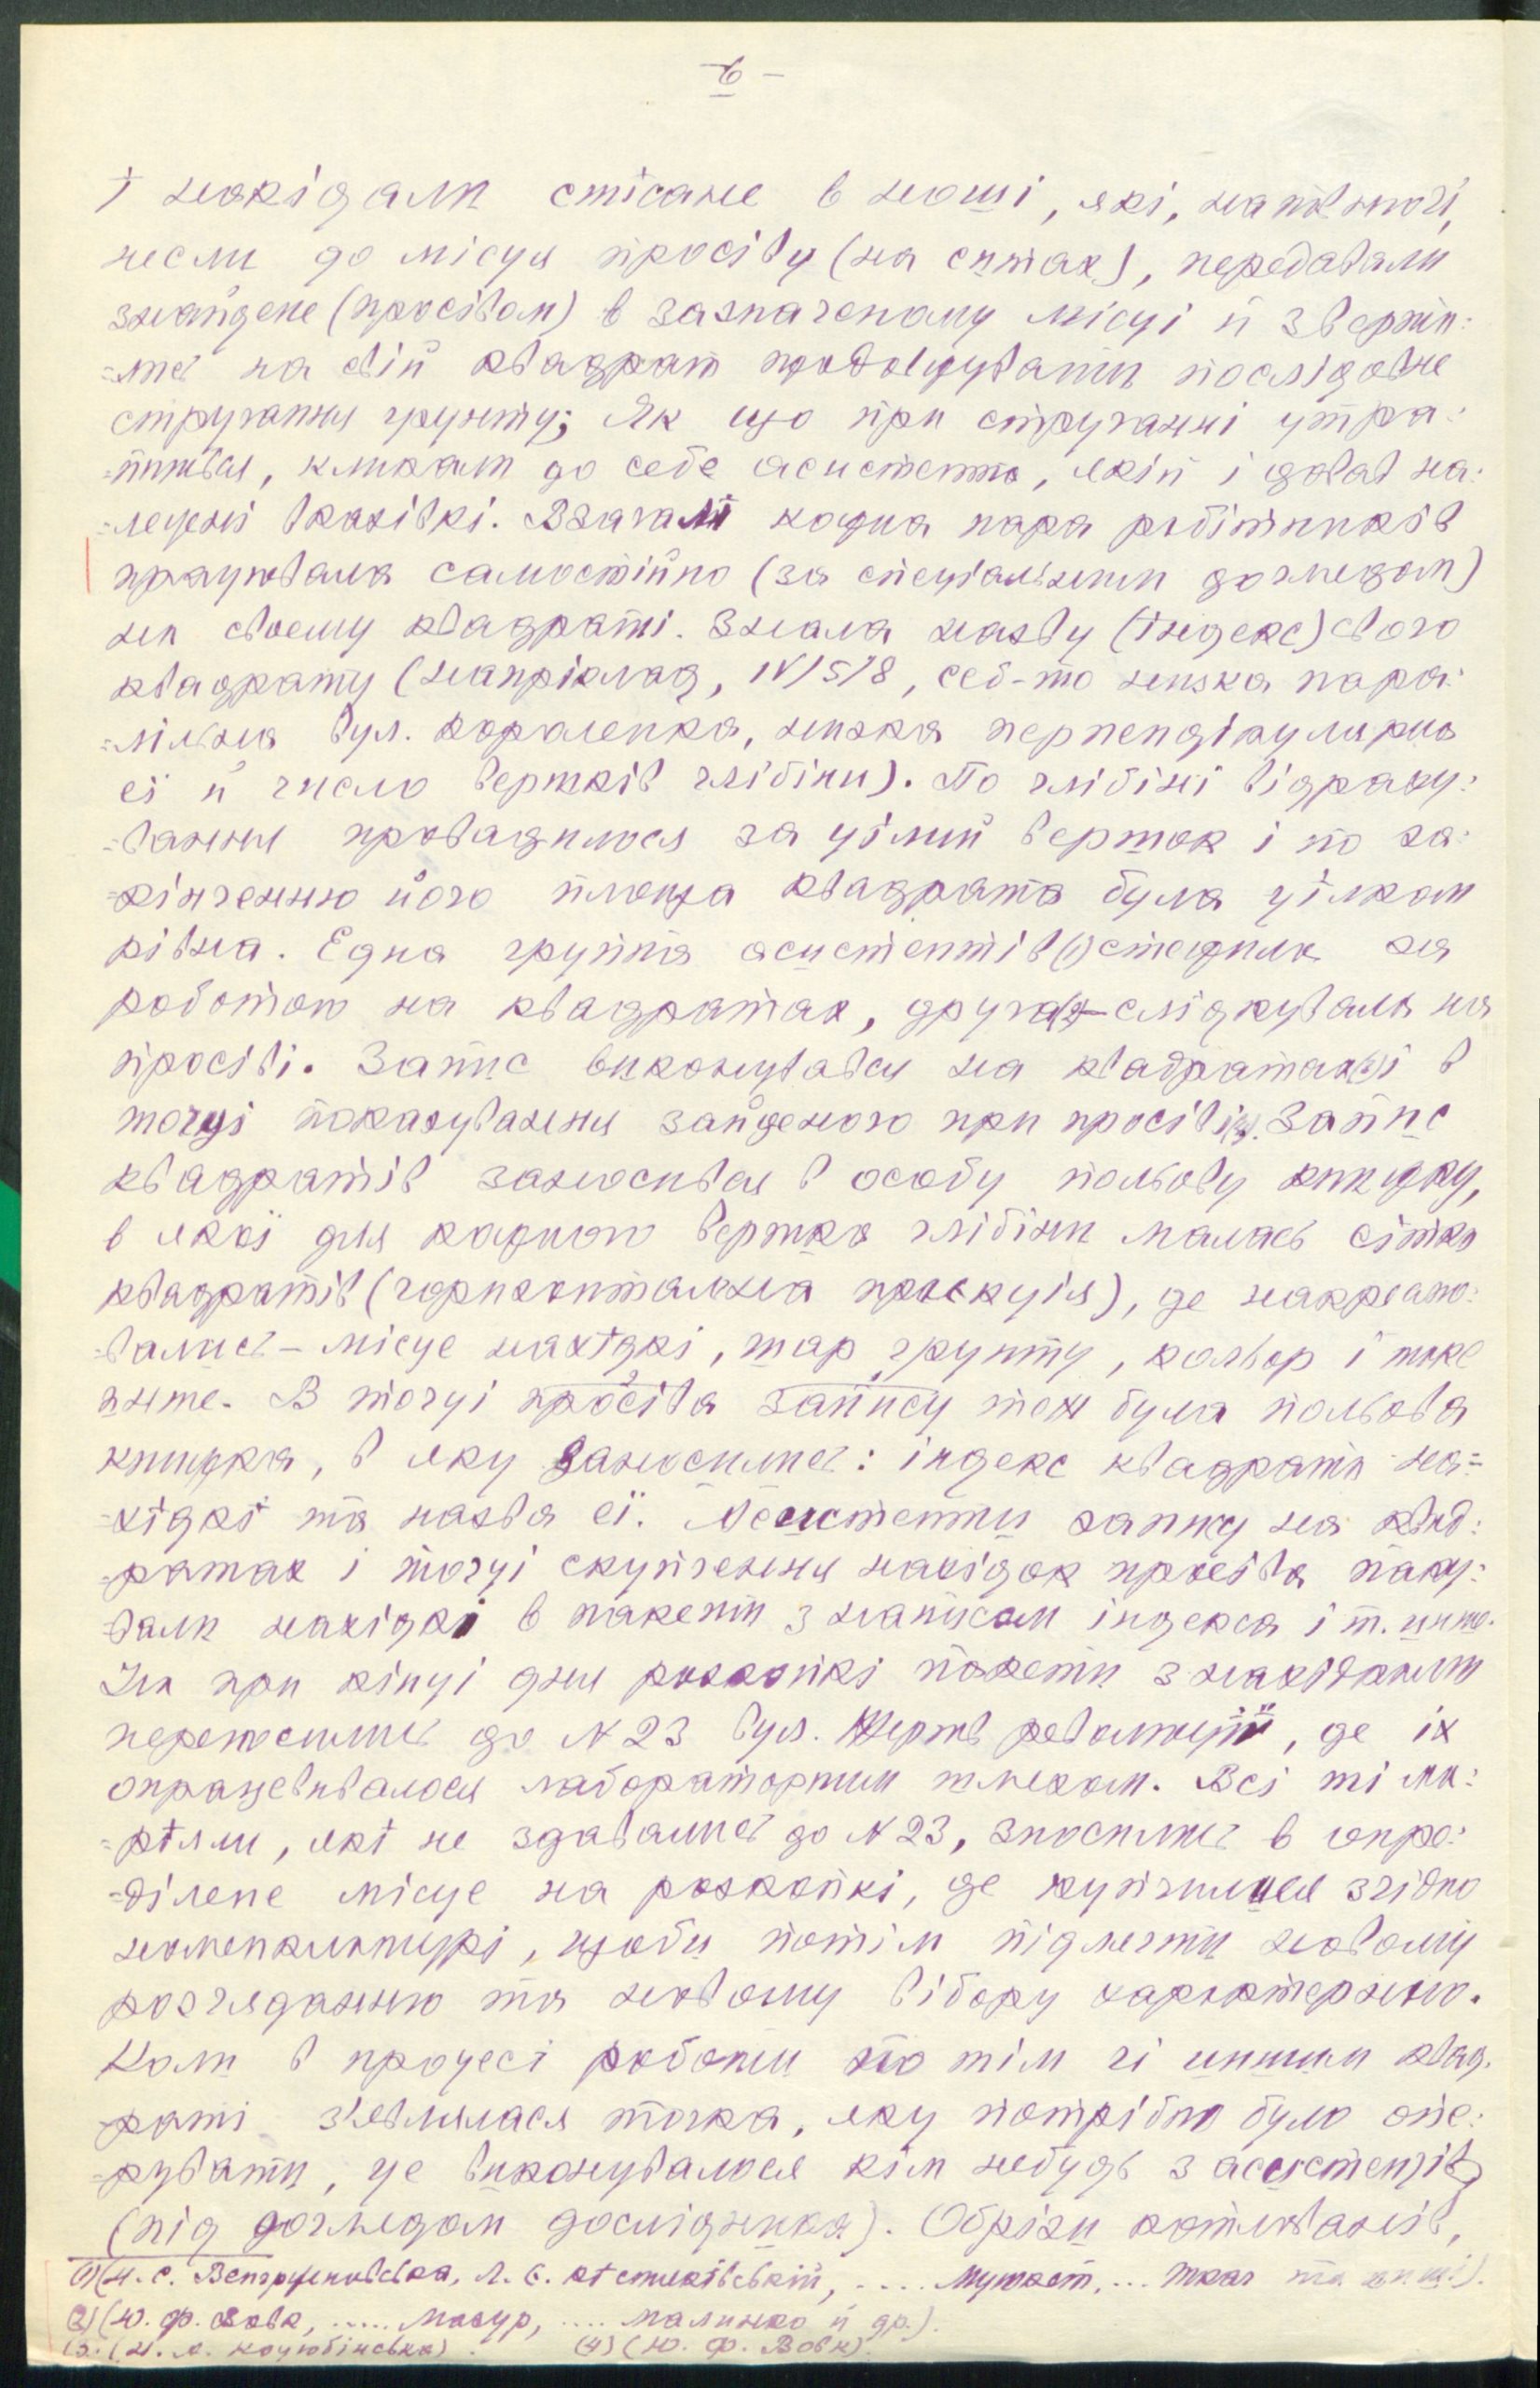 - 6 -
і накідали стісане в ноші, які, наповночі,
несли до місця просіву (на ситах), передавали
знайдене (просівом) в зазначеному місці й зверта:
=лись на свій квадрат продовжувати послідовне
стругання грунту; Як що при струганні утра:
, кликали до себе асистента, якій і давав на:
=лежні вказівкі. Взагалі кожна пара робітників
працювала самостійно (за спеціальним доглядом)
на своєму квадраті. Знала назву (індекс) свого
квадрату (наприклад, IV/5/8, себ-то низка пара:
=лільна вул. Короленка, низка перпендікулярна
еї й число вертків глібіни). По глібіні відраху:
=вання провадилося за цілий верток і по за:
=кінченню його площа квадрата була цілком
рівна. Една группа асистентів(1) стежила за
роботою на квадратах, друга(2) – слідкувала на
просіві. Запис виконувався на квадратах(3) і в
точці показування зайденого при просіві(4). Запис
квадратів заносився в особу польову книжку,
в якої для кожного вертка глібіни малась сітка
квадратів (горизонтальна проєкція), де накреслю:
=вались – місце нахідкі, шар грунту, кольор і таке
инше. В точці просіва запису теж була польова
книжка, в яку заносились: індекс квадрата на=
=хідкі та назва еї. Асистенти запису на квад:
=ратах і точці скупчення нахідок просіва паку:
=вали нахідкі в пакети з написом індекса і т. инше.
На при кінці дня розкопкі пакети з нахідками
переносились до N 23 вул. Жертв революції, де іх
опрацевивалося лабораторним шляхом. Всі ті ма:
=ріяли, які не здавались до N 23, зносились в опре:
=ділене місце на розкопкі, де купчилися згідно
номенклатурі, щоби потім підлягти новому
розгляданню та новому вібору характерного.
Коли в процесі роботи по тім чі иншим квад.
раті зʼявлялася точка, яку потрібно було опе:
=рувати, це виконувалося кім небудь з асистентів
(під доглядом дослідника). Обрізи котлованів,
(1) (Н. С. Венгрженовська, Л. Є. Кістяківській, ..... Мушкет, ... Ткач та инші).
(2) (Ю. Ф. Вовк, ..... Мазур, .... Малинко й др.).
(3. (Н. А. Коцюбінська). (4) (Ю. Ф. Вовк).